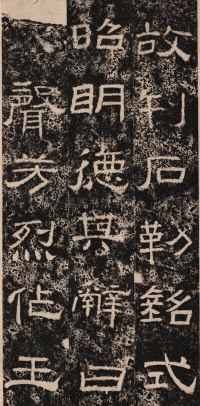 故刊石勒銘式
昭明德其辭曰
聲芳烈佐王